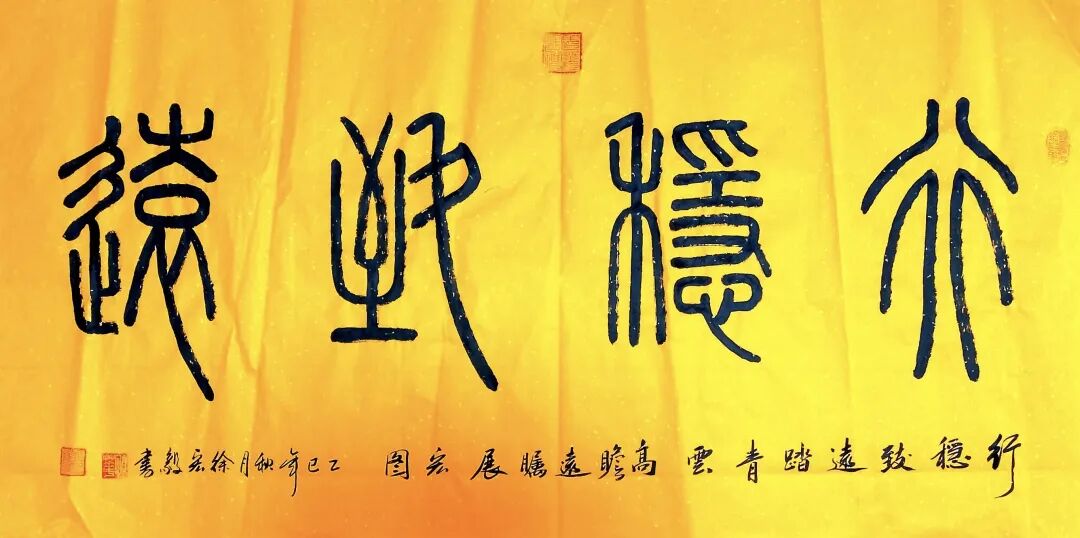 行穩致遠
行穩致遠踏青雲 高瞻遠矚展宏图 乙巳年秋月徐宏毅書